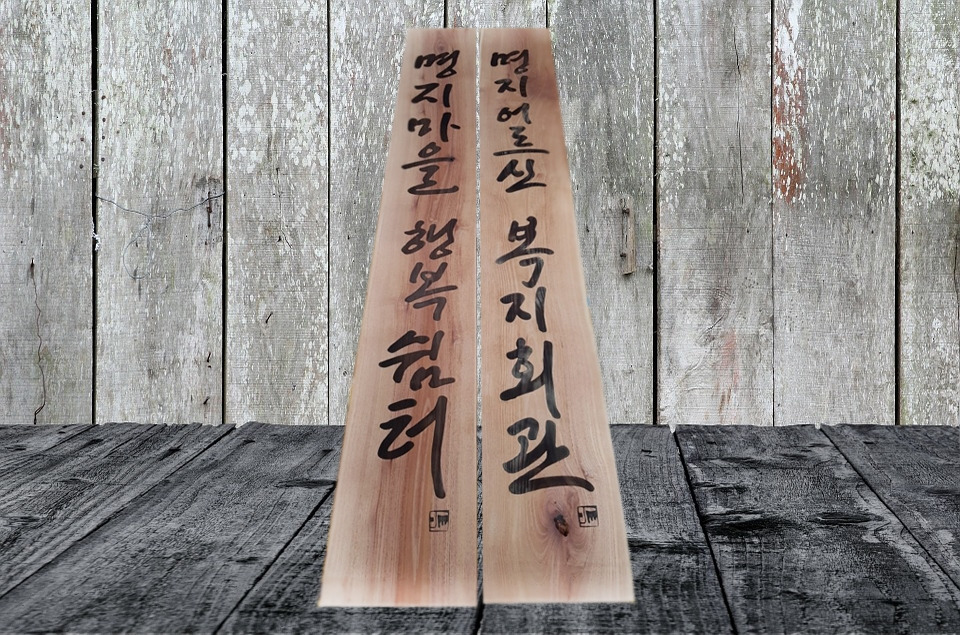 명지마을 행복쉼터
명지어르신 복지회관